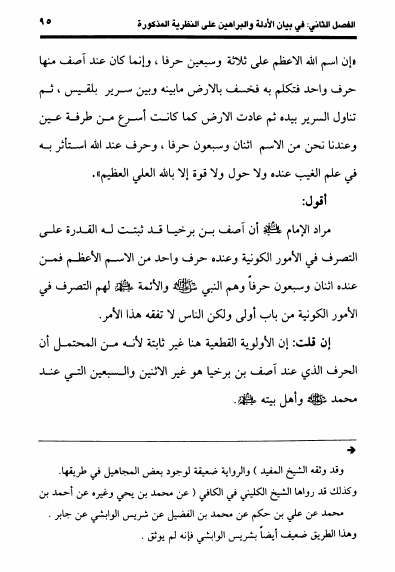 الفصل الثاني: في بيان الأدلة والبراهين على النظرية المذكورة ٩٥
«إن اسم الله الاعظم على ثلاثة وسبعين حرفا ، وإنما كان عند آصف منها
حرف واحد فتكلم به فخسف بالارض مابينه وبين سرير بلقيس ، ثم
تناول السرير بيده ثم عادت الارض كما كانت أسرع من طرفة عين
وعندنا نحن من الاسم اثنان وسبعون حرفا ، وحرف عند الله استأثر به
في علم الغيب عنده ولا حول ولا قوة إلا بالله العلي العظيم».
أقول:
مراد الإمام أن آصف بن برخيا قد ثبتت له القدرة على
التصرف في الأمور الكونية وعنده حرف واحد من الاسم الأعظم فمن
عنده اثنان وسبعون حرفاً وهم النبي والأئمة لهم التصرف في
الأمور الكونية من باب أولى ولكن الناس لا تفقه هذا الأمر.
إن قلت: إن الأولوية القطعية هنا غير ثابتة لأنه من المحتمل أن
الحرف الذي عند آصف بن برخيا هو غير الاثنين والسبعين التي عند
محمد وأهل بيته .
→
وقد وثقه الشيخ المفيد ) والرواية ضعيفة لوجود بعض المجاهيل في طريقها.
وكذلك قد رواها الشيخ الكليني في الكافي ( عن محمد بن يحي وغيره عن أحمد بن
محمد عن علي بن حكم عن محمد بن الفضيل عن شريس الوابشي عن جابر .
وهذا الطريق ضعيف أيضاً بشريس الوابشي فإنه لم يوثق .